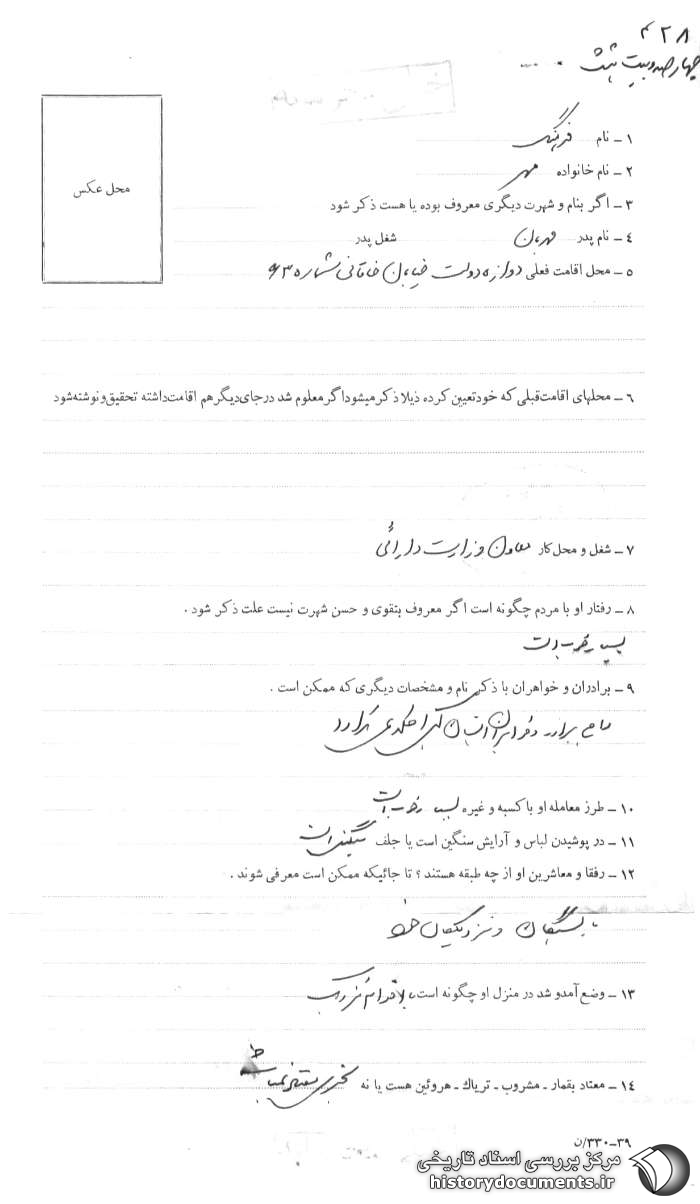 ۴۲۸
چهارصد و بیست و هشت
محل عکس
۱ ــ نام فرهنگ
۲ ــ نام خانواده مهر
۳ ــ اگر بنام و شهرت دیگری معروف بوده یا هست ذکر شود
۴ ــ نام پدر مهربان شغل پدر
۵ ــ محل اقامت فعلی دروازه دولت خیابان خاقانی شماره ۶۳
۶ ــ محلهای اقامت‌قبلی که خودتعیین کرده ذیلا ذکرمیشود اگر معلوم شد درجای‌دیگرهم اقامت‌داشته تحقیق‌ونوشته‌شود
۷ ــ شغل و محل کار معاون وزارت دارائی
۸ ــ رفتار او با مردم چگونه است اگر معروف بتقوی و حسن شهرت نیست علت ذکر شود .
بسیار خوب است
۹ ــ برادران و خواهران با ذکر نام و مشخصات دیگری که ممکن است .
۱۰ ــ طرز معامله او با کسبه و غیره بسیار خوب است
۱۱ ــ در پوشیدن لباس و آرایش سنگین است یا جلف سنگین است
۱۲ ــ رفقا و معاشرین او از چه طبقه هستند ؟ تا جائیکه ممکن است معرفی شوند .
با بستگان و نزدیکان خود
۱۳ ــ وضع آمدو شد در منزل او چگونه است
۱۴ ــ معتاد بقمار ـ مشروب ـ تریاك ـ هروئین هست یا نه بچیزی معتاد نمیباشد
۳۹ــ۳۳۰/ن
مرکز بررسی اسناد تاریخی
historydocuments.ir